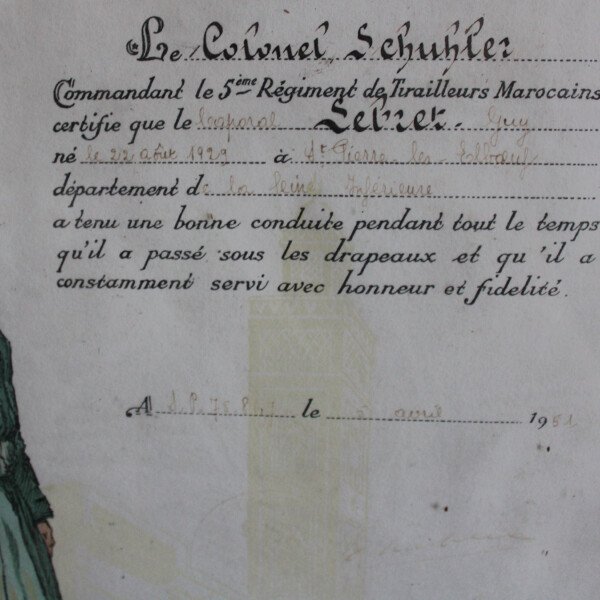 Le Colonel Schuhler
Commandant le 5ème Régiment de Tirailleurs Marocains
certifie que le Caporal Lebret Guy
né le 22 août 1929 à St Pierre les Elboeuf
département de la Seine Inférieure
a tenu une bonne conduite pendant tout le temps
qu'il a passé sous les drapeaux et qu'il a
constamment servi avec honneur et fidelité.
A le avril 1951